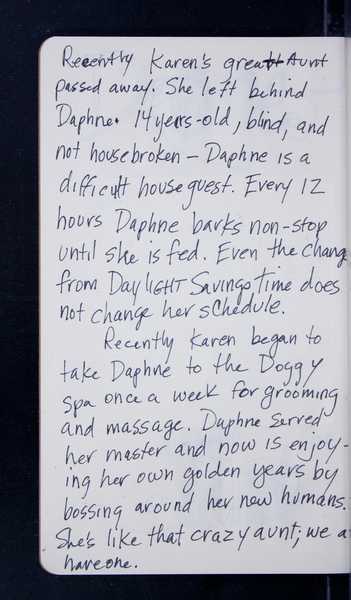 Recently Karen's great Aunt
passed away. She left behind
Daphne. 14 years-old, blind, and
not housebroken – Daphne is a
difficult houseguest. Every 12
hours Daphne barks non-stop
until she is fed. Even the change
from DayLIGHT Savings Time does
not change her schedule.
Recently Karen began to
take Daphne to the Doggy
Spa once a week for grooming
and massage. Daphne served
her master and now is enjoy-
ing her own golden years by
bossing around her new humans.
She's like that crazy aunt; we a
have one.